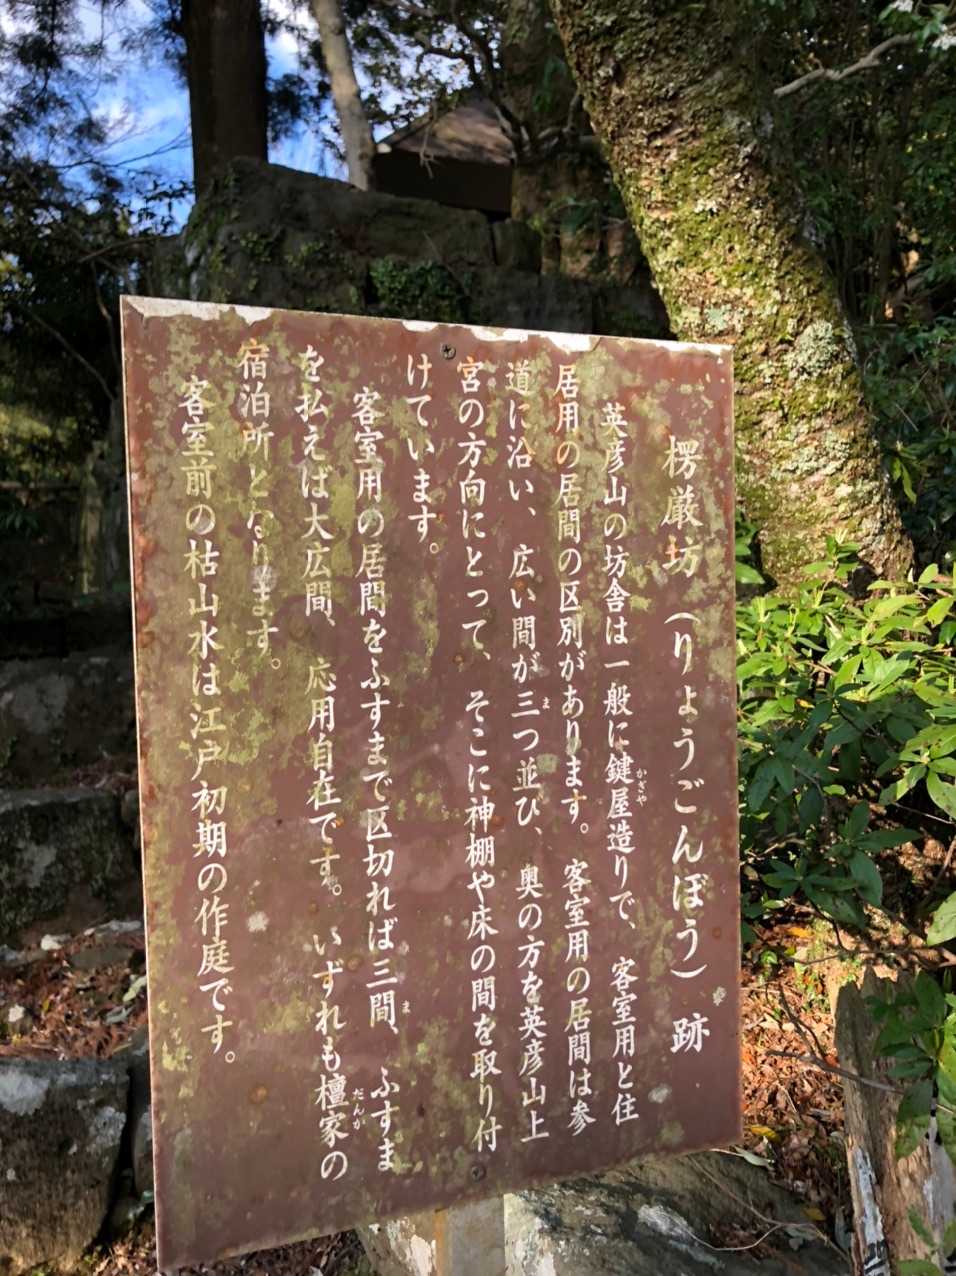 楞厳坊（りょうごんぼう）跡
英彦山の坊舎は一般に鍵屋造りで、客室用と住
居用の居間の区別があります。客室用の居間は参
道に沿い、広い間が三つ並び、奥の方を英彦山上
宮の方向にとって、そこに神棚や床の間を取り付
けています。
客室用の居間をふすまで区切れば三間、ふすま
を払えば大広間、応用自在です。いずれも檀家の
宿泊所となります。
客室前の枯山水は江戸初期の作庭です。